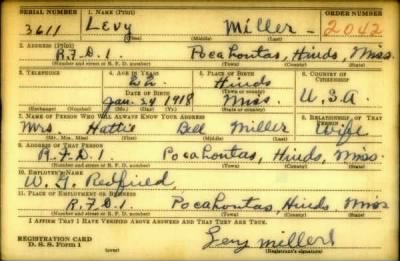 SERIAL NUMBER 1. NAME (Print) ORDER NUMBER
3611 Levy Miller 2042
(First) (Middle) (Last)
2. ADDRESS (Print)
R.F.D.1 Pocahontas, Hinds, Miss.
(Number and street or R. F. D. number) (Town) (County) (State)
3. TELEPHONE 4. AGE IN YEARS 5. PLACE OF BIRTH 6. COUNTRY OF CITIZENSHIP
22 Hinds
DATE OF BIRTH (Town or county)
Jan. 24 1918 Miss. U.S.A
(Exchange) (Number) (Mo.) (Day) (Yr.) (State or country)
7. NAME OF PERSON WHO WILL ALWAYS KNOW YOUR ADDRESS 8. RELATIONSHIP OF THAT PERSON
Mrs. Hattie Bell Miller Wife
(Mr., Mrs., Miss) (First) (Middle) (Last)
9. ADDRESS OF THAT PERSON
R.F.D.1 Pocahontas, Hinds, Miss.
(Number and street or R. F. D. number) (Town) (County) (State)
10. EMPLOYER'S NAME
Redfield,
11. PLACE OF EMPLOYMENT OR BUSINESS
R.F.D.1 Pocahontas, Hinds, Miss
(Number and street or R. F. D. number) (Town) (County) (State)
I AFFIRM THAT I HAVE VERIFIED ABOVE ANSWERS AND THAT THEY ARE TRUE.
REGISTRATION CARD
D. S. S. Form 1 (over) (Registrant's signature)